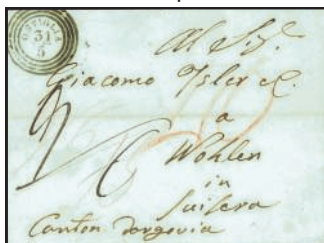 OSTIGLIA
31
5
Al Sig.
Giacomo Isler & C.
a
Wohlen
in
Suisera
Canton Argovia